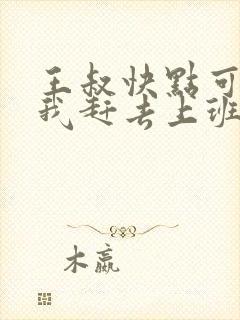 王叔快點可
我赶去上班
木嬴